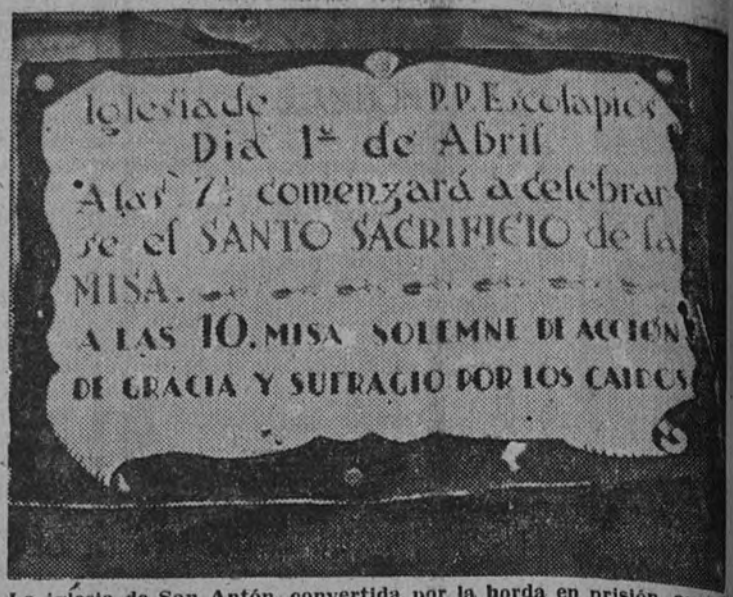 Iglesia de S. ANTON P.P. Escolapios
Dia 1º de Abril
A las 7½ comenzará a celebrar
se el SANTO SACRIFICIO de la
MISA.
A LAS 10. MISA SOLEMNE DE ACCIÓN
DE GRACIA Y SUFRAGIO POR LOS CAIDOS
La iglesia de San Antón, convertida por la horda en prisión